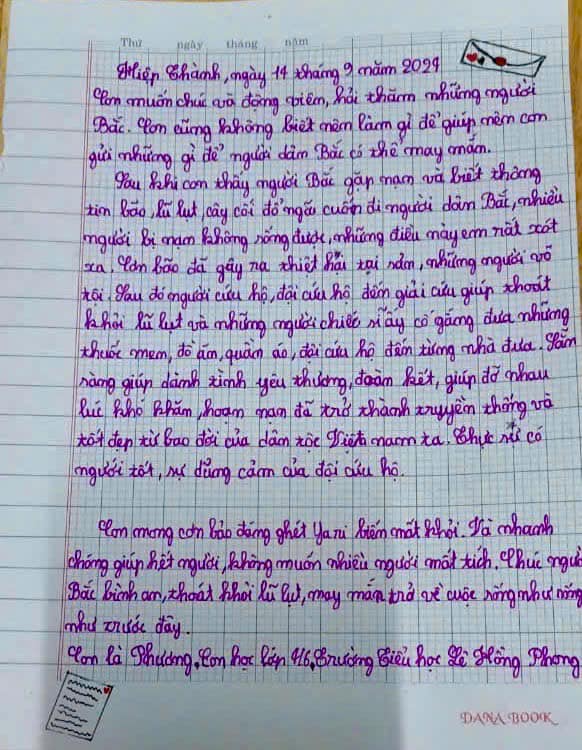 Thứ ngày tháng năm
Hiệp Thành, ngày 14 tháng 9 năm 2024
Con muốn chúc và động viên, hỏi thăm những người
Bắc. Con cũng không biết nên làm gì để giúp nên con
gửi những gì để người dân Bắc có thể may mắn.
Sau khi con thấy người Bắc gặp nạn và biết thông
tin bão, lũ lụt, cây cối đổ ngã cuốn đi người dân Bắc, nhiều
người bị nạn không sống được, những điều này em rất xót
xa. Cơn bão đã gây ra thiệt hải tại sản, những người vô
tội. Sau đó người cứu hộ, đội cứu hộ đến giải cứu giúp thoát
khỏi lũ lụt và những người chiếc sĩ ấy cố gắng đưa những
thuốc men, đồ ăn, quần áo, đội cứu hộ đến từng nhà đưa. Sẵn
sàng giúp dành tình yêu thương, đoàn kết, giúp đỡ nhau
lúc khó khăn, hoạn nạn đã trở thành truyền thống và
tốt đẹp từ bao đời của dân tộc Việt nam ta. Thực sự có
người tốt, sự dũng cảm của đội cứu hộ.
Con mong cơn bảo đáng ghét Yani biến mất khỏi. Và nhanh
chóng giúp hết người, không muốn nhiều người mất tích. Chúc người
Bắc bình an, thoát khỏi lũ lụt, may mắn trở về cuộc sống như
như trước đây.
Con là Phương, Con học lớp 4/6, Trường Tiểu học Lê Hồng Phong
DANA BOOK